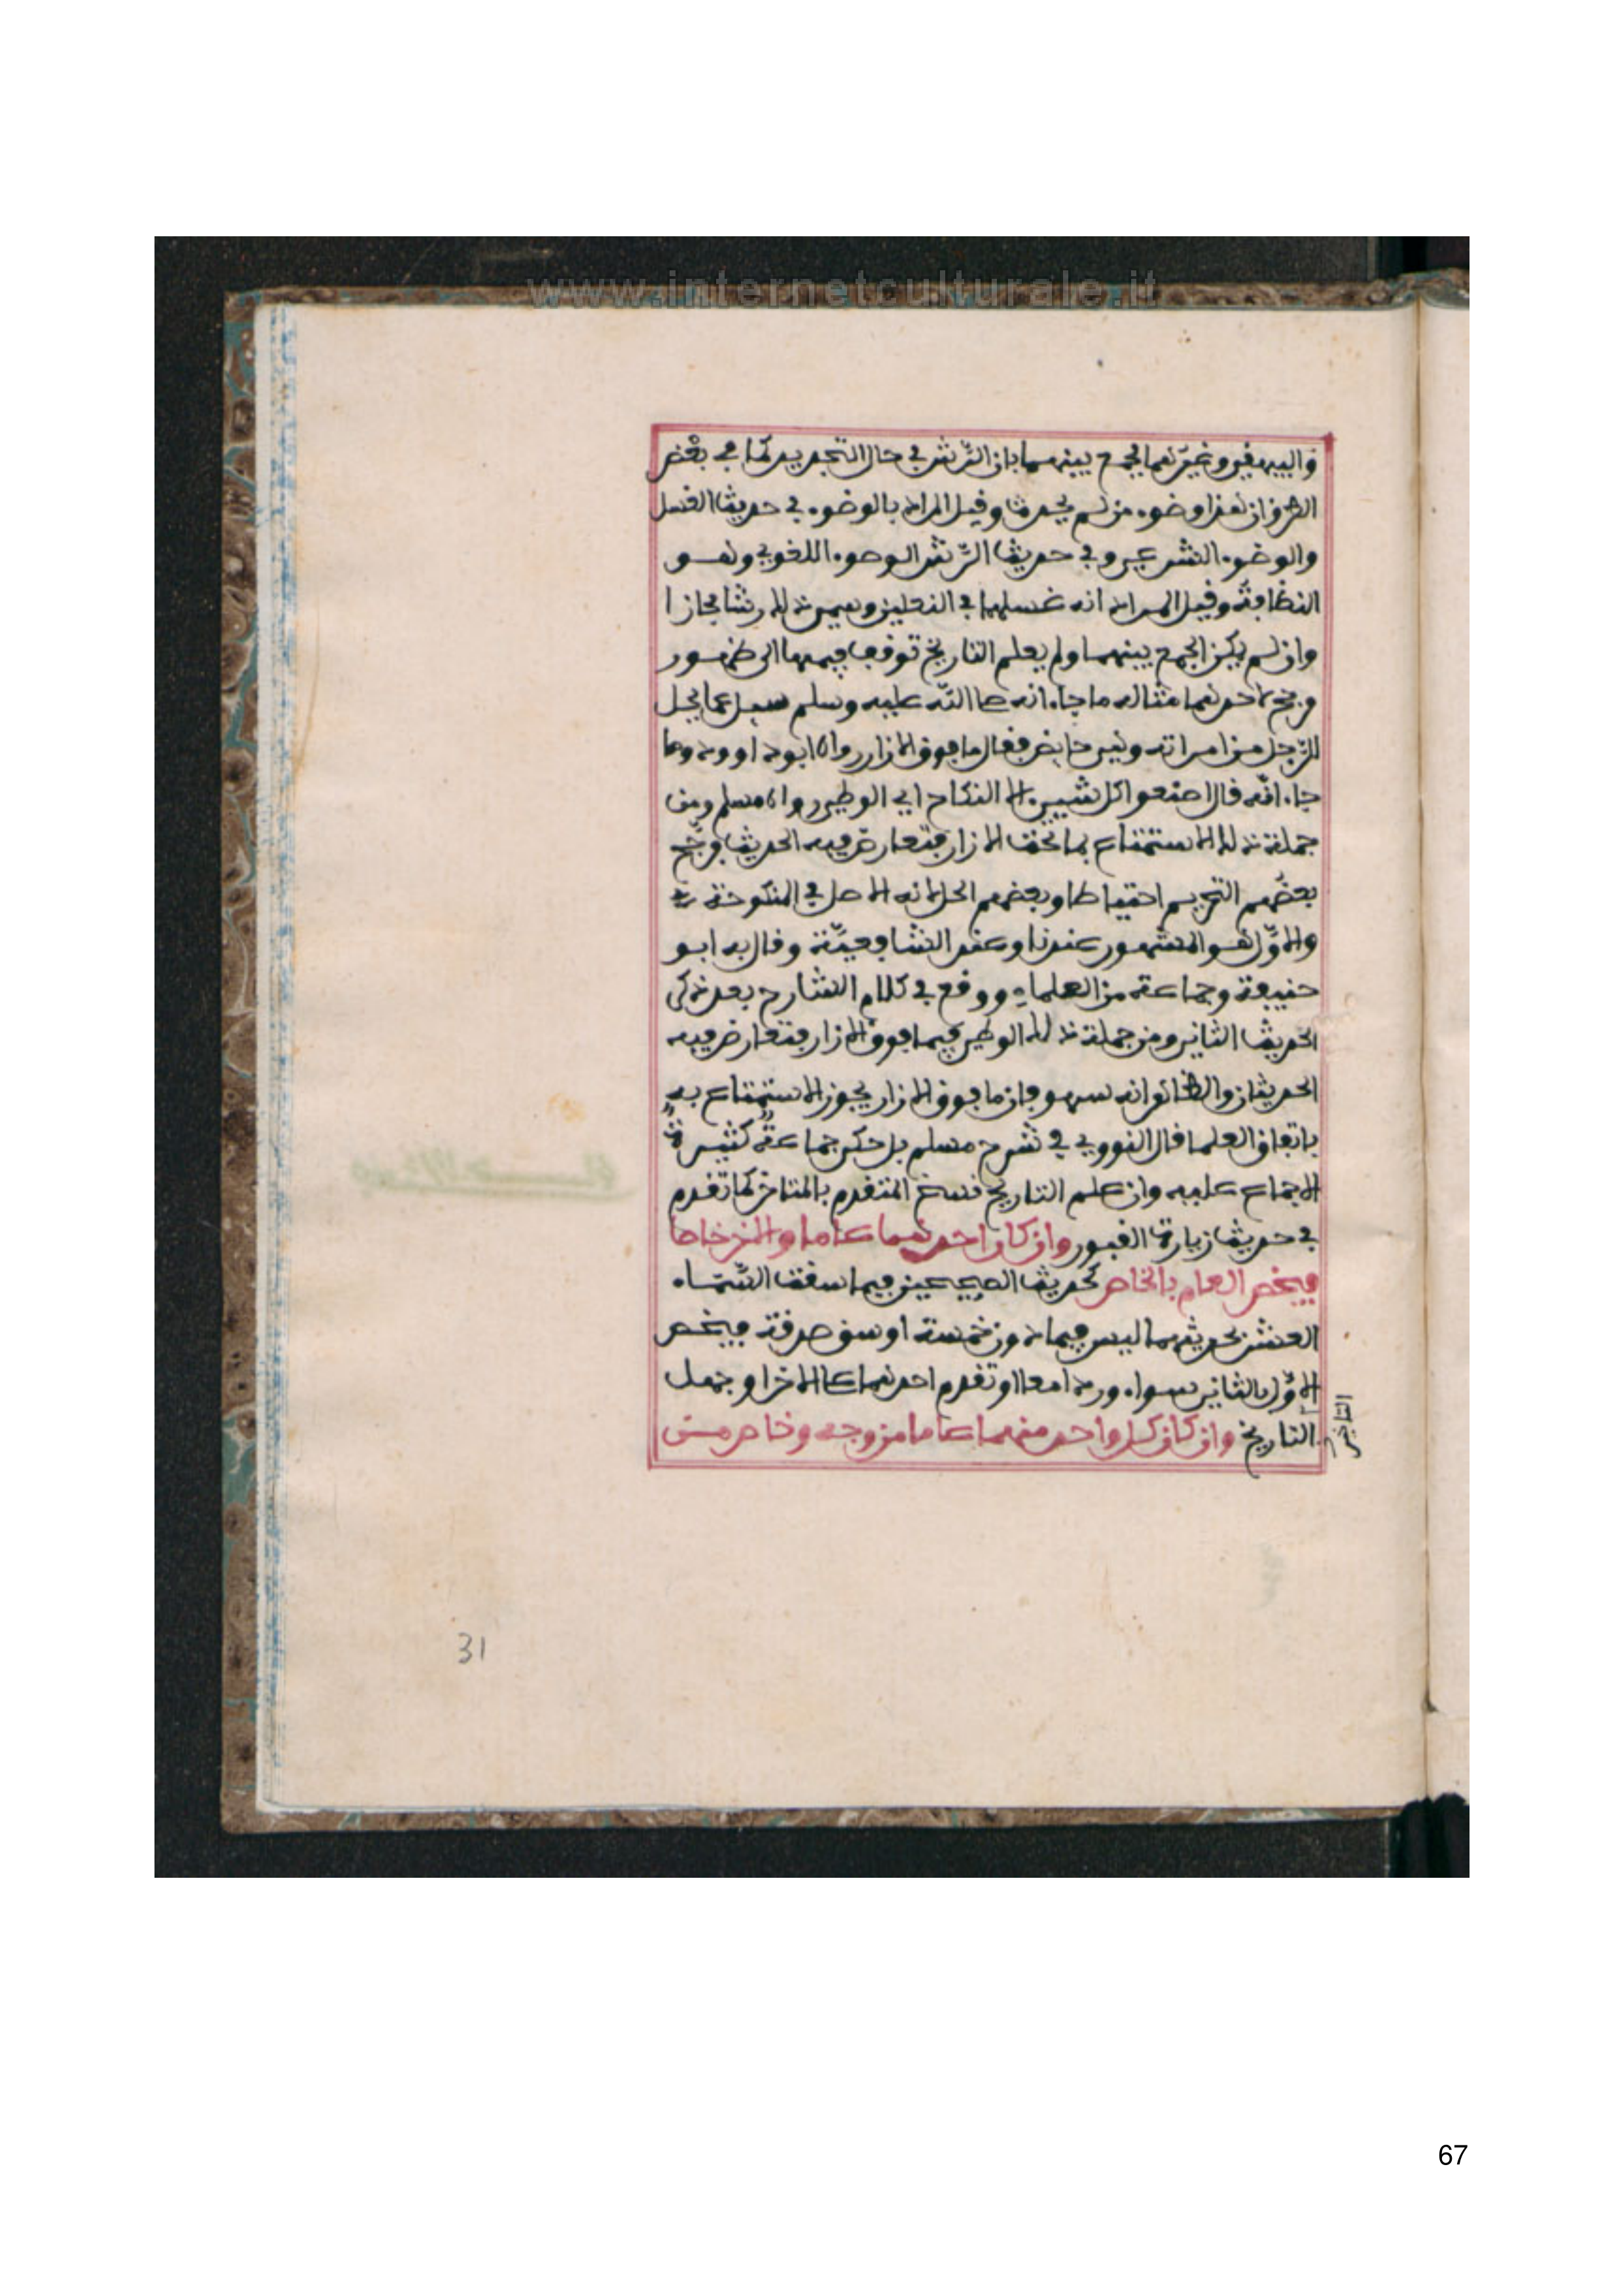 www.internetculturale.it
والبيهقي وغيرهما فجمع بينهما بان الرّش في حال التجديد لما في بعض
الطرق ان هذا وضوء من لم يحدث وقيل المراد بالوضوء في حديث الغسل
والوضوء الشرعي وفي حديث الرّش الوضوء اللغوي وهو
النظافة وقيل المراد انه غسلهما في النعلين وسمي ذلك رشا مجازا
وان لم يمكن الجمع بينهما ولم يعلم التاريخ توقف فيهما الى ظهور
مرجح احدهما مثاله ما جاء انه صلى اللّه عليه وسلم سيل عما يحل
للرّجل من امراته وهي حايض فقال ما فوق الازار رواه ابو داوود وما
جاء انّه قال اصنعوا كل شيء الا النكاح اي الوطي رواه مسلم ومن
جملة ذلك الاستمتاع بما تحت الازار فتعارض فيه الحديث فرجّح
بعضهم التحريم احتياطا وبعضهم الحل لانه الاصل في المنكوحة
والاوّل هو المشهور عندنا وعند الشافعيّة وقال به ابو
حنيفة وجماعة من العلماء ووقع في كلام الشارح بعد ذكر
الحديث الثاني ومن جملة ذلك الوطي فيما فوق الازار فتعارض فيه
الحديثان والظاهر انه سهو فان ما فوق الازار يجوز الاستمتاع به
باتفاق العلما قال النووي في شرح مسلم بل حكى جماعة كثيرة
الاجماع عليه وان علم التاريخ فنسخ المتقدم بالمتاخر كما تقدم
في حديث زيارة القبور وان كان احدهما عاما والاخر خاصا
فيخص العام بالخاص كحديث الصحيحين فيما سقت السّماء
العشر بحديثهما ليس فيما دون خمسة اوسق صدقة فيخص
الاوّل بالثاني سواء وردا معا او تقدم احدهما على الاخر او جهل
التاريخ وان كان كل واحد منهما عاما من وجه وخاص من
31
67